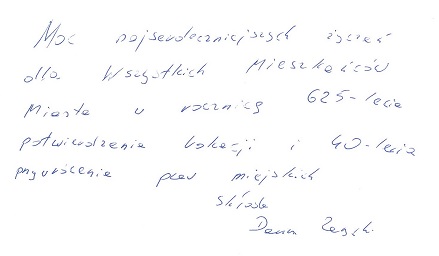 Moc najserdeczniejszych życzeń
dla Wszystkich Mieszkańców
Miasta w rocznicę 625-lecia
potwierdzenia lokacji i 40-lecia
przywrócenia praw miejskich
składa